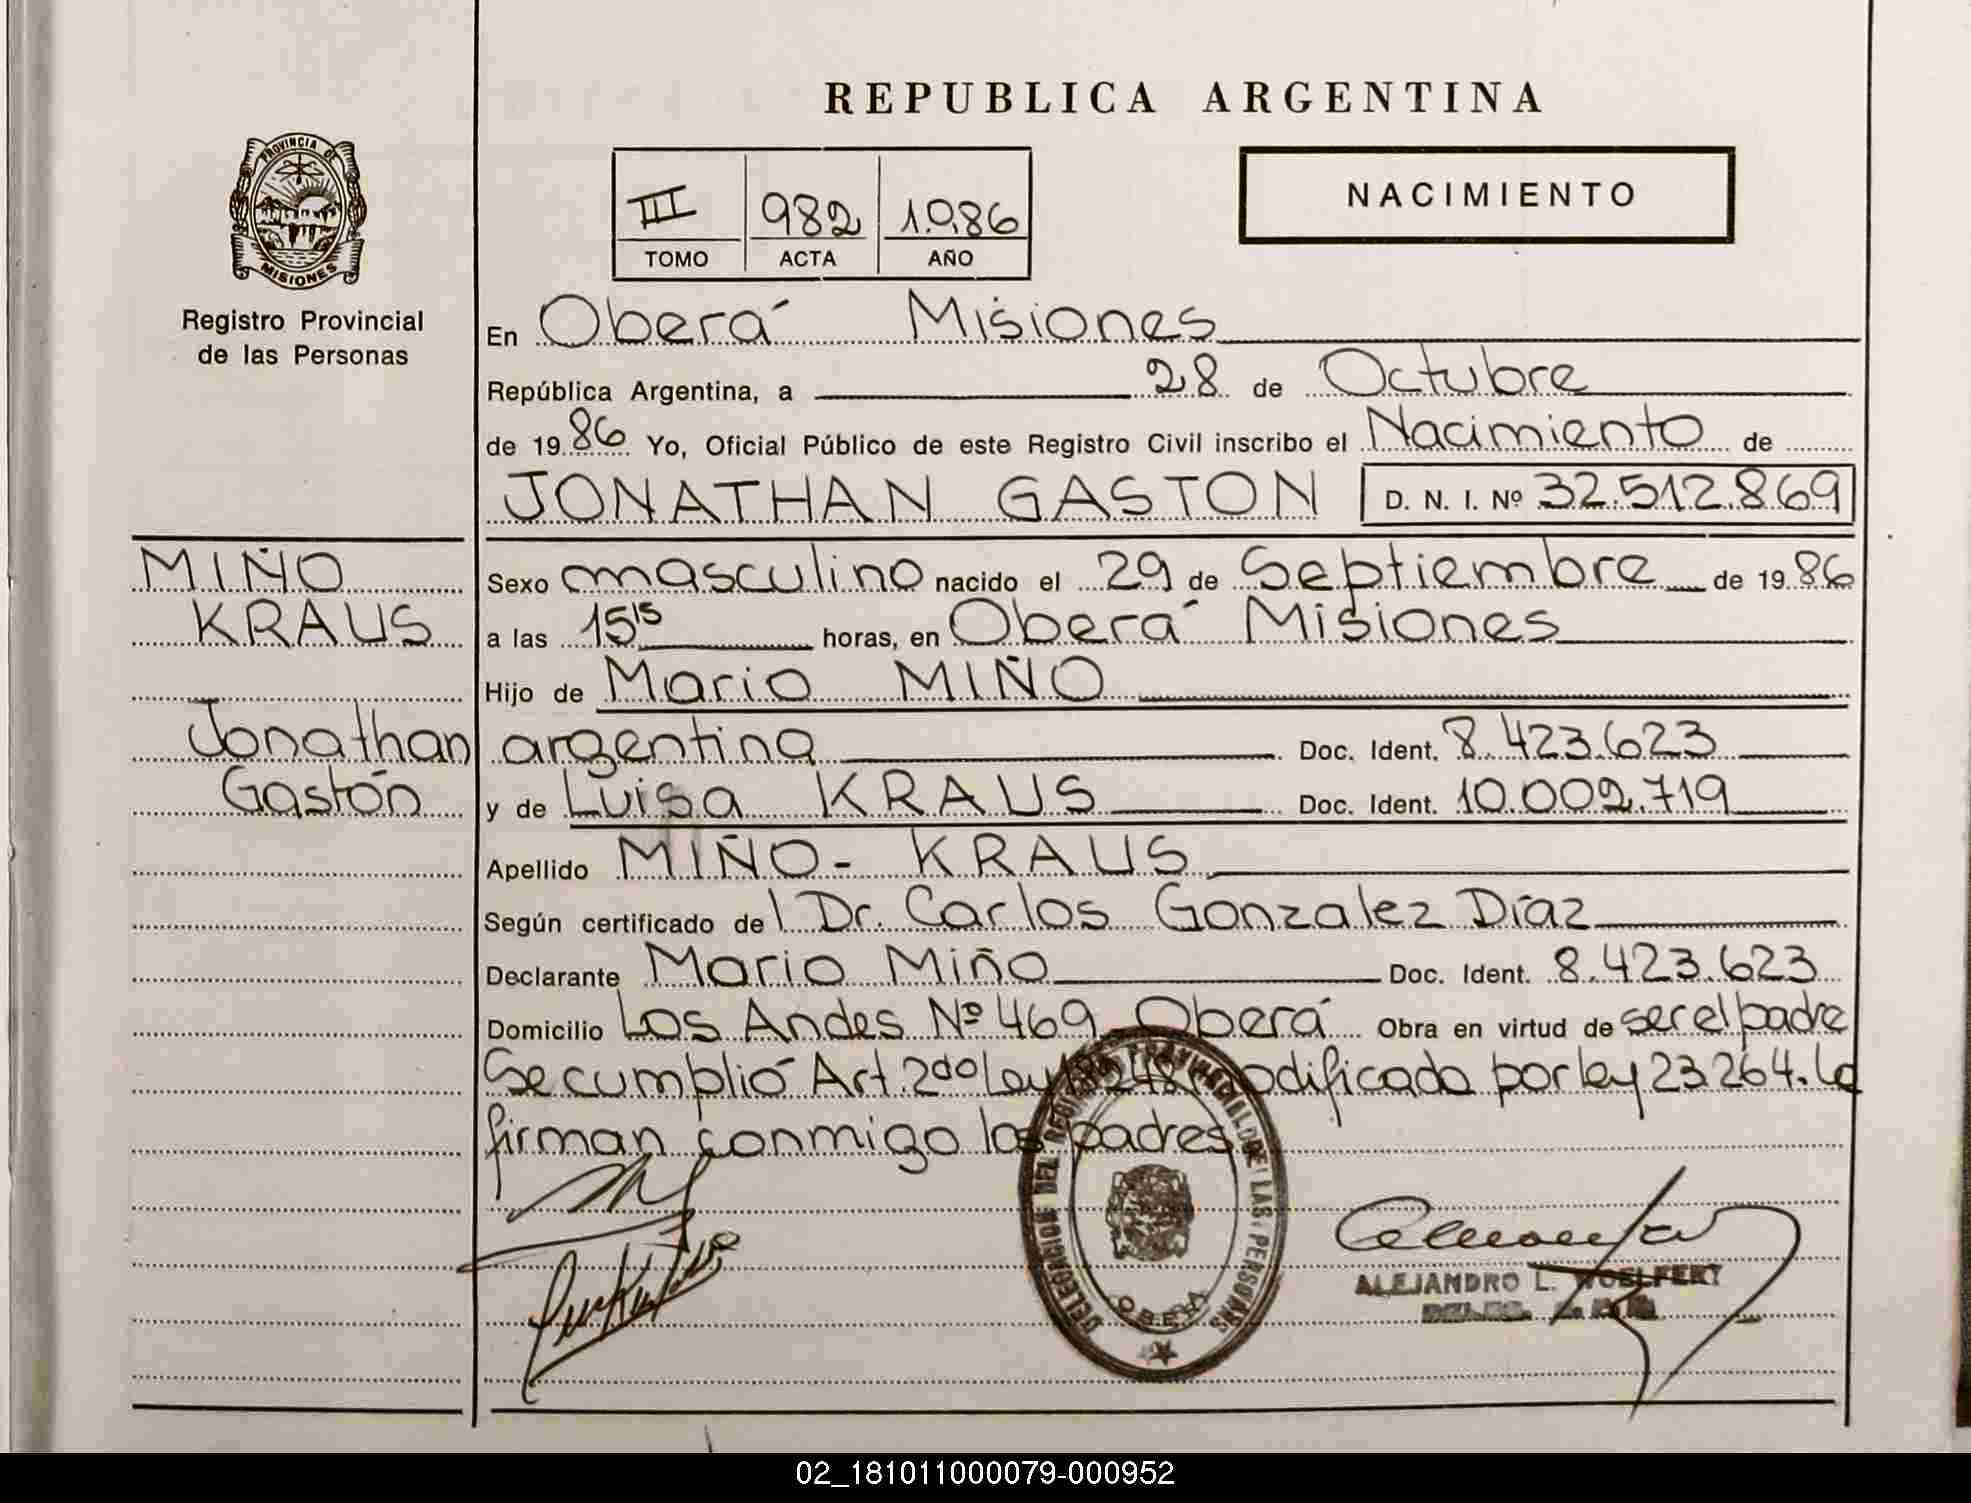 REPUBLICA ARGENTINA
PROVINCIA DE
MISIONES
Registro Provincial
de las Personas
III 982 1.986
TOMO ACTA AÑO
NACIMIENTO
En Oberá Misiones
República Argentina, a 28 de Octubre
de 19 86 Yo, Oficial Público de este Registro Civil inscribo el Nacimiento de
JONATHAN GASTON D. N. I. Nº 32.512.869
MIÑO
KRAUS
Jonathan
Gastón
Sexo masculino nacido el 29 de Septiembre de 19 86
a las 15 15 horas, en Oberá Misiones
Hijo de Mario MIÑO
argentina Doc. Ident. 8.423.623
y de Luisa KRAUS Doc. Ident. 10.002.719
Apellido MIÑO - KRAUS
Según certificado de l Dr. Carlos Gonzalez Díaz
Declarante Mario Miño Doc. Ident. 8.423.623
Domicilio Los Andes Nº 469 Oberá Obra en virtud de ser el padre
Se cumplió Art. 2do Ley modificado por ley 23.264. La
firman conmigo los padres
DELEGACION DEL REGISTRO PROVINCIAL DE LAS PERSONAS
OBERA
ALEJANDRO L. WOELFERT
02_181011000079-000952